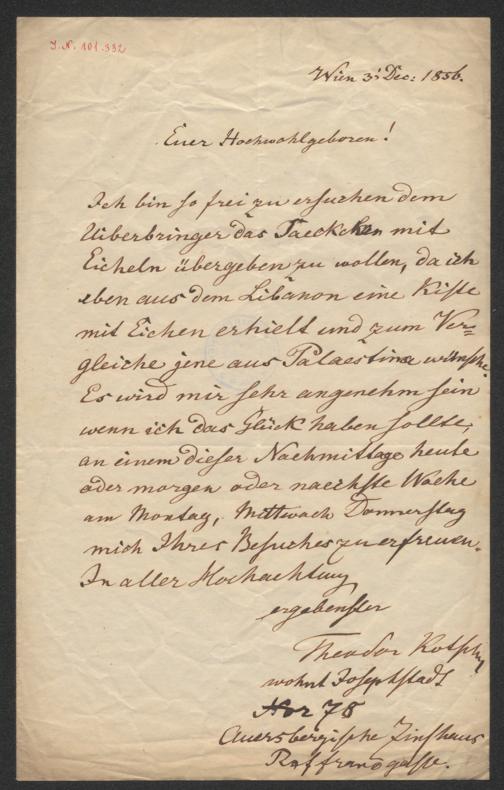 J. N. 101.332
Wien 3t Dec: 1856.
Euer Hochwohlgeboren!
Ich bin so frei zu ersuchen dem
Uiberbringer das Paeckchen mit
Eicheln übergeben zu wollen, da ich
eben aus dem Libanon eine Kiste
mit Eichen erhielt und zum Ver=
gleiche jene aus Palaestina wünsche.
Es wird mir sehr angenehm sein
wenn ich das Glück haben sollte,
an einem dieser Nachmittage heute
oder morgen oder naechste Woche
am Montag, Mittwoch Donnerstag
mich Ihres Besuches zu erfreuen.
In aller Hochachtung
ergebenster
Theodor Kotschy
wohnt Josephstadt
Nor 78
Auersbergische Zinshaus